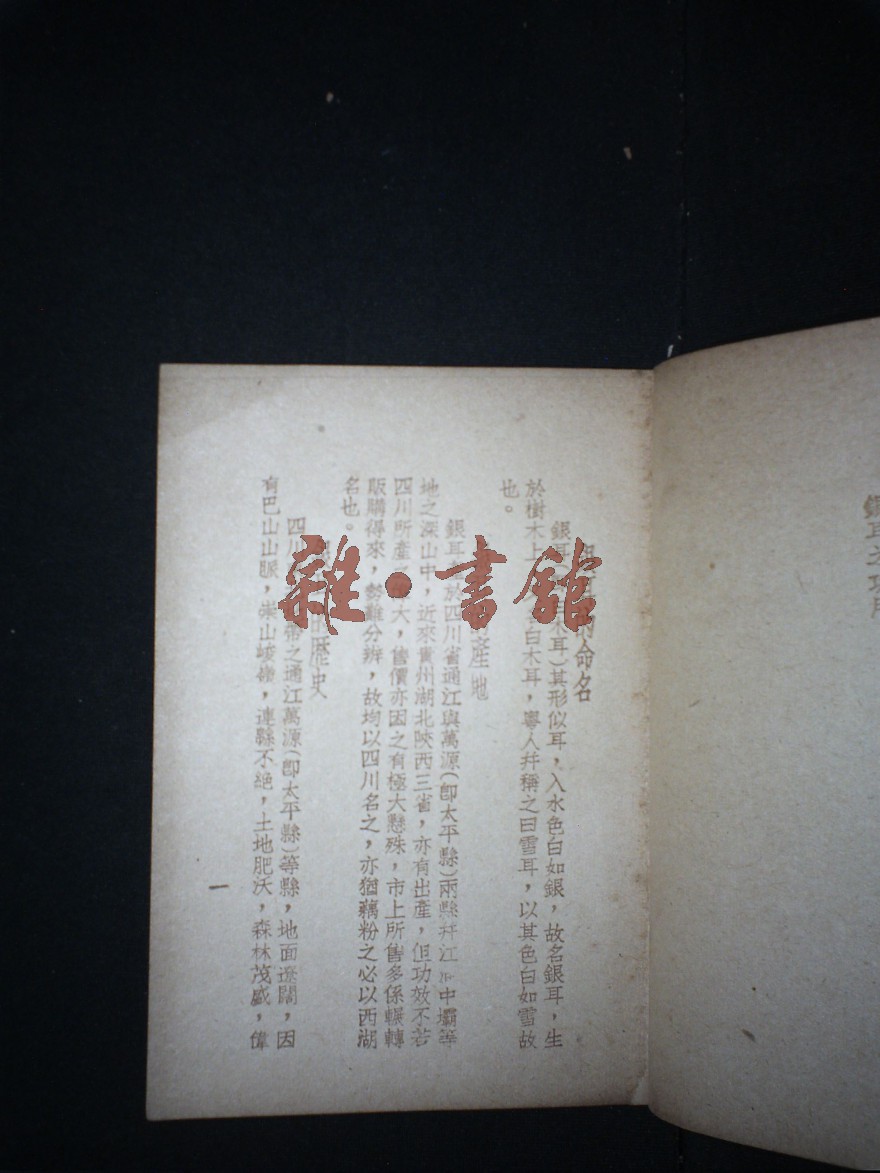 銀耳之功用
命名
銀耳 木耳)其形似耳,入水色白如銀,故名銀耳,生
於樹木上 白木耳,粵人幷稱之曰雪耳,以其色白如雪故
也。
產地
銀耳 於四川省通江與萬源(卽太平縣)兩縣幷江 中壩等
地之深山中,近來貴州湖北陝西三省,亦有出產,但功效不若
四川所產 大,售價亦因之有極大懸殊,市上所售多係輾轉
販購得來, 難分辨,故均以四川名之,亦猶藕粉之必以西湖
名也。
歷史
四川 帶之通江萬源(卽太平縣)等縣,地面遼闊,因
有巴山山脈,崇山峻嶺,連縣不絕,土地肥沃,森林茂盛,偉
一
雜·書館